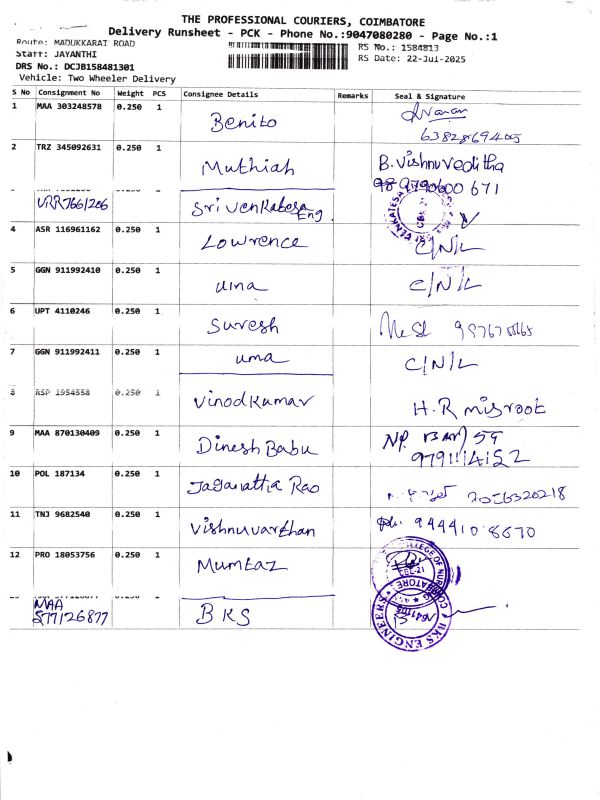 THE PROFESSIONAL COURIERS, COIMBATORE
Delivery Runsheet - PCK - Phone No.:9047080280 - Page No.:1
Route: MADUKKARAI ROAD
RS No.: 1584813
Staff: JAYANTHI
RS Date: 22-Jul-2025
DRS No.: DCJB158481301
Vehicle: Two Wheeler Delivery
S No Consignment No Weight PCS Consignee Details Remarks Seal & Signature
1 MAA 303248578 0.250 1 Benito
2 TRZ 345092631 0.250 1 Muthiah B. Vishnuveditha
9790600671
VRR7661206 Sri Venkatesa Eng
4 ASR 116961162 0.250 1 Lowrence C/N/L
5 GGN 911992410 0.250 1 uma C/N/L
6 UPT 4110246 0.250 1 Suresh
7 GGN 911992411 0.250 1 uma C/N/L
8 RSP 1954558 0.250 1 Vinod Kumar H.R misroot
9 MAA 870130409 0.250 1 Dinesh Babu
9791114152
10 POL 187134 0.250 1 Jaganatha Rao
11 TNJ 9682540 0.250 1 Vishnuvarthan 9444108670
12 PRO 18053756 0.250 1 Mumtaz
MAA
577126877 BKS BKS ENGINEERS